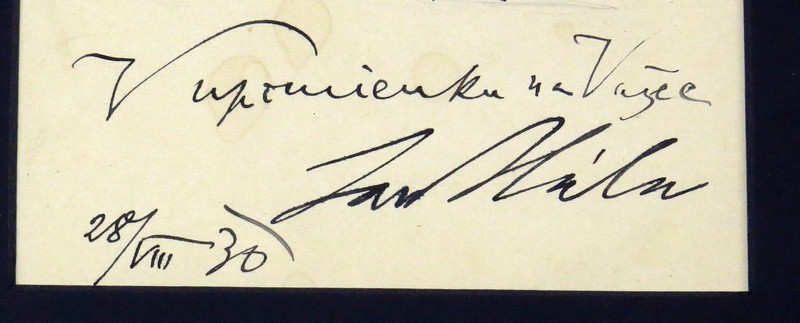 V upomienku na Važec
Jan Hála
28/VIII 30